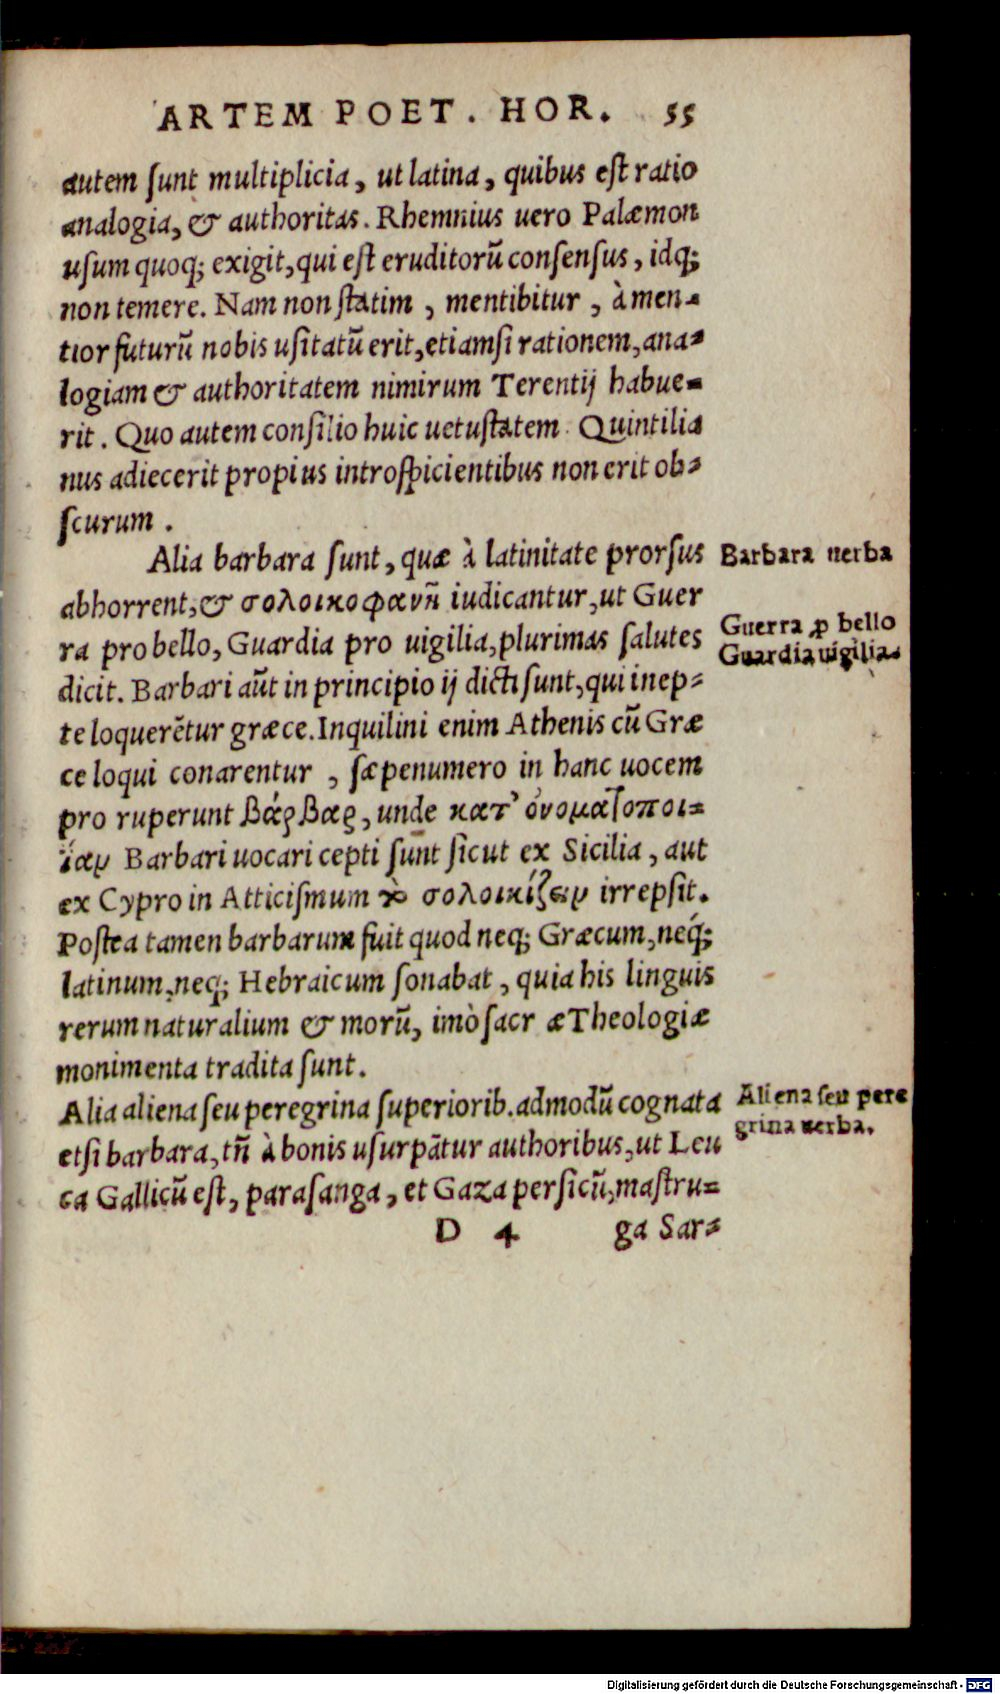 ARTEM POET. HOR. 55
autem ſunt multiplicia, ut latina, quibus eſt ratio
analogia, & authoritas. Rhemnius uero Palæmon
uſum quoq; exigit, qui eſt eruditorū conſenſus, idq;
non temere. Nam non ſtatim, mentibitur, à men-
tior futurū nobis uſitatū erit, etiamſi rationem, ana-
logiam & authoritatem nimirum Terentij habue-
rit. Quo autem conſilio huic uetuſtatem Quintilia
nus adiecerit propius introſpicientibus non erit ob-
ſcurum.
Alia barbara ſunt, quæ à latinitate prorſus
Barbara uerba
abhorrent, & σολοικοφανῆ iudicantur, ut Guer
ra pro bello, Guardia pro uigilia, plurimas ſalutes
Guerra ꝓ bello
Guardia uigilia.
dicit. Barbari aūt in principio ij dicti ſunt, qui inep-
te loquerētur græce. Inquilini enim Athenis cū Græ
ce loqui conarentur, ſæpenumero in hanc uocem
pro ruperunt βάρβαρ, unde κατ' ὀνοματοποι-
ΐαν Barbari uocari cepti ſunt ſicut ex Sicilia, aut
ex Cypro in Atticiſmum τὸ σολοικίζειν irrepſit.
Poſtea tamen barbarum fuit quod neq; Græcum, neq́;
latinum, neq; Hebraicum ſonabat, quia his linguis
rerum naturalium & morū, imò ſacr æ Theologiæ
monimenta tradita ſunt.
Alia aliena ſeu peregrina ſuperiorib. admodū cognata
Aliena ſeu pere
grina uerba.
etſi barbara, tñ à bonis uſurpātur authoribus, ut Leu
ca Gallicū eſt, paraſanga, et Gaza perſicū, maſtru-
D 4 ga Sar-
Digitalisierung gefördert durch die Deutsche Forschungsgemeinschaft - DFG